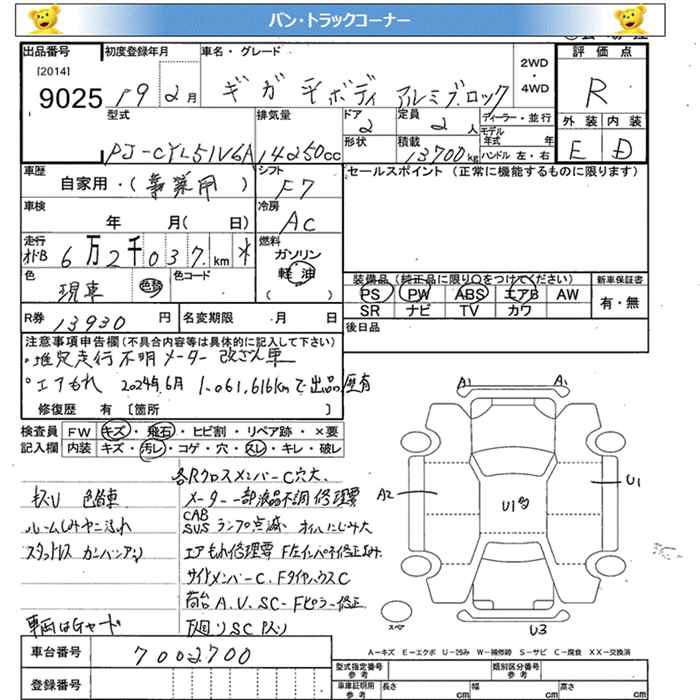 バン・トラックコーナー
出品番号 初度登録年月 車名・グレード 2WD・4WD 評価点
[2014]
9025 19 2月 ギガ 平ボディ アルミブロック R
型式 排気量 ドア 2 定員 2人 ディーラー・並行 外装 内装
PJ-CYL51V6A 14250cc 形状 積載 13700kg モデル年式 年 ハンドル 左・右 E D
車歴 自家用・(事業用) シフト F7 セールスポイント (正常に機能するものに限ります)
車検 年 月( 日) 冷房 AC
走行 メーターB 6万2千037km * 燃料 ガソリン 軽油 ( )
色 現車 色替 色コード 装備品 (純正品に限り○をつけてください) 新車保証書
PS PW ABS エアB AW 有・無
SR ナビ TV カワ
R券 13930円 名変期限 月 日 後日品
注意事項申告欄(不具合内容等は具体的に記入して下さい)
・推定走行不明 メーター改ざん車
・エアもれ 2024年6月 1,061,616kmで出品歴有
修復歴 有 [箇所 ]
検査員 FW キズ・飛石・ヒビ割・リペア跡・×要
記入欄 内装 キズ・汚レ・コゲ・穴・スレ・キレ・破レ
各Rクロスメンバー C穴大、
キズU 色替車 メーター一部液晶不調 修理要
ルームしみヤニ汚れ CAB SUS ランプ点滅 オイルにじみ大
スタットレス カンバンアリ エアもれ修理要 Fインパネ修正済み、
サイドメンバーC、FタイヤハウスC
荷台 A、V、SC-Fピラー修正
車両はGヤード 下回りSC P入り
A1 A1
A2 U1多 U1
スペア U3
A-キズ E-エクボ U-凹み W-補修跡 S-サビ C-腐食 XX-交換済
車台番号 7002700 型式指定番号 参考 類別区分番号 参考
登録番号 車庫証明用 参考 長さ cm 幅 cm 高さ cm